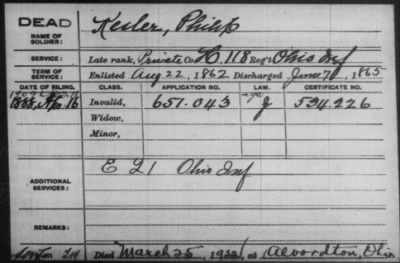 DEAD
NAME OF SOLDIER: Kesler, Philip
SERVICE: Late rank, Private Co. H, 118 Reg't Ohio Inf
TERM OF SERVICE: Enlisted Aug 22, 1862 Discharged June 7, 1865
DATE OF FILING. CLASS. APPLICATION NO. LAW. CERTIFICATE NO.
1888, Apr. 16 Invalid, 651.043 J 534.226
Widow,
Minor,
ADDITIONAL SERVICES: E 21 Ohio Inf
REMARKS:
Died March 25, at Alvordton, Ohio